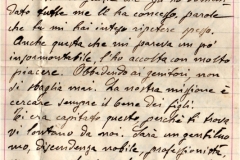 dato
me Ve ha concesso, parole
che tu mi hai inteso ripetere spesso.
Anche questa che mi pareva un po'
insormontabile, l'ho accolta con molto
piacere. Obbidendo ai genitori, non
si sbaglia mai. La nostra missione è
cercare sempre il bene dei figli.
Ti era capitato questo, perché ti trovo
vi lontano da noi. Sarà un gentiluo
mo, discendenza nobile, professionista